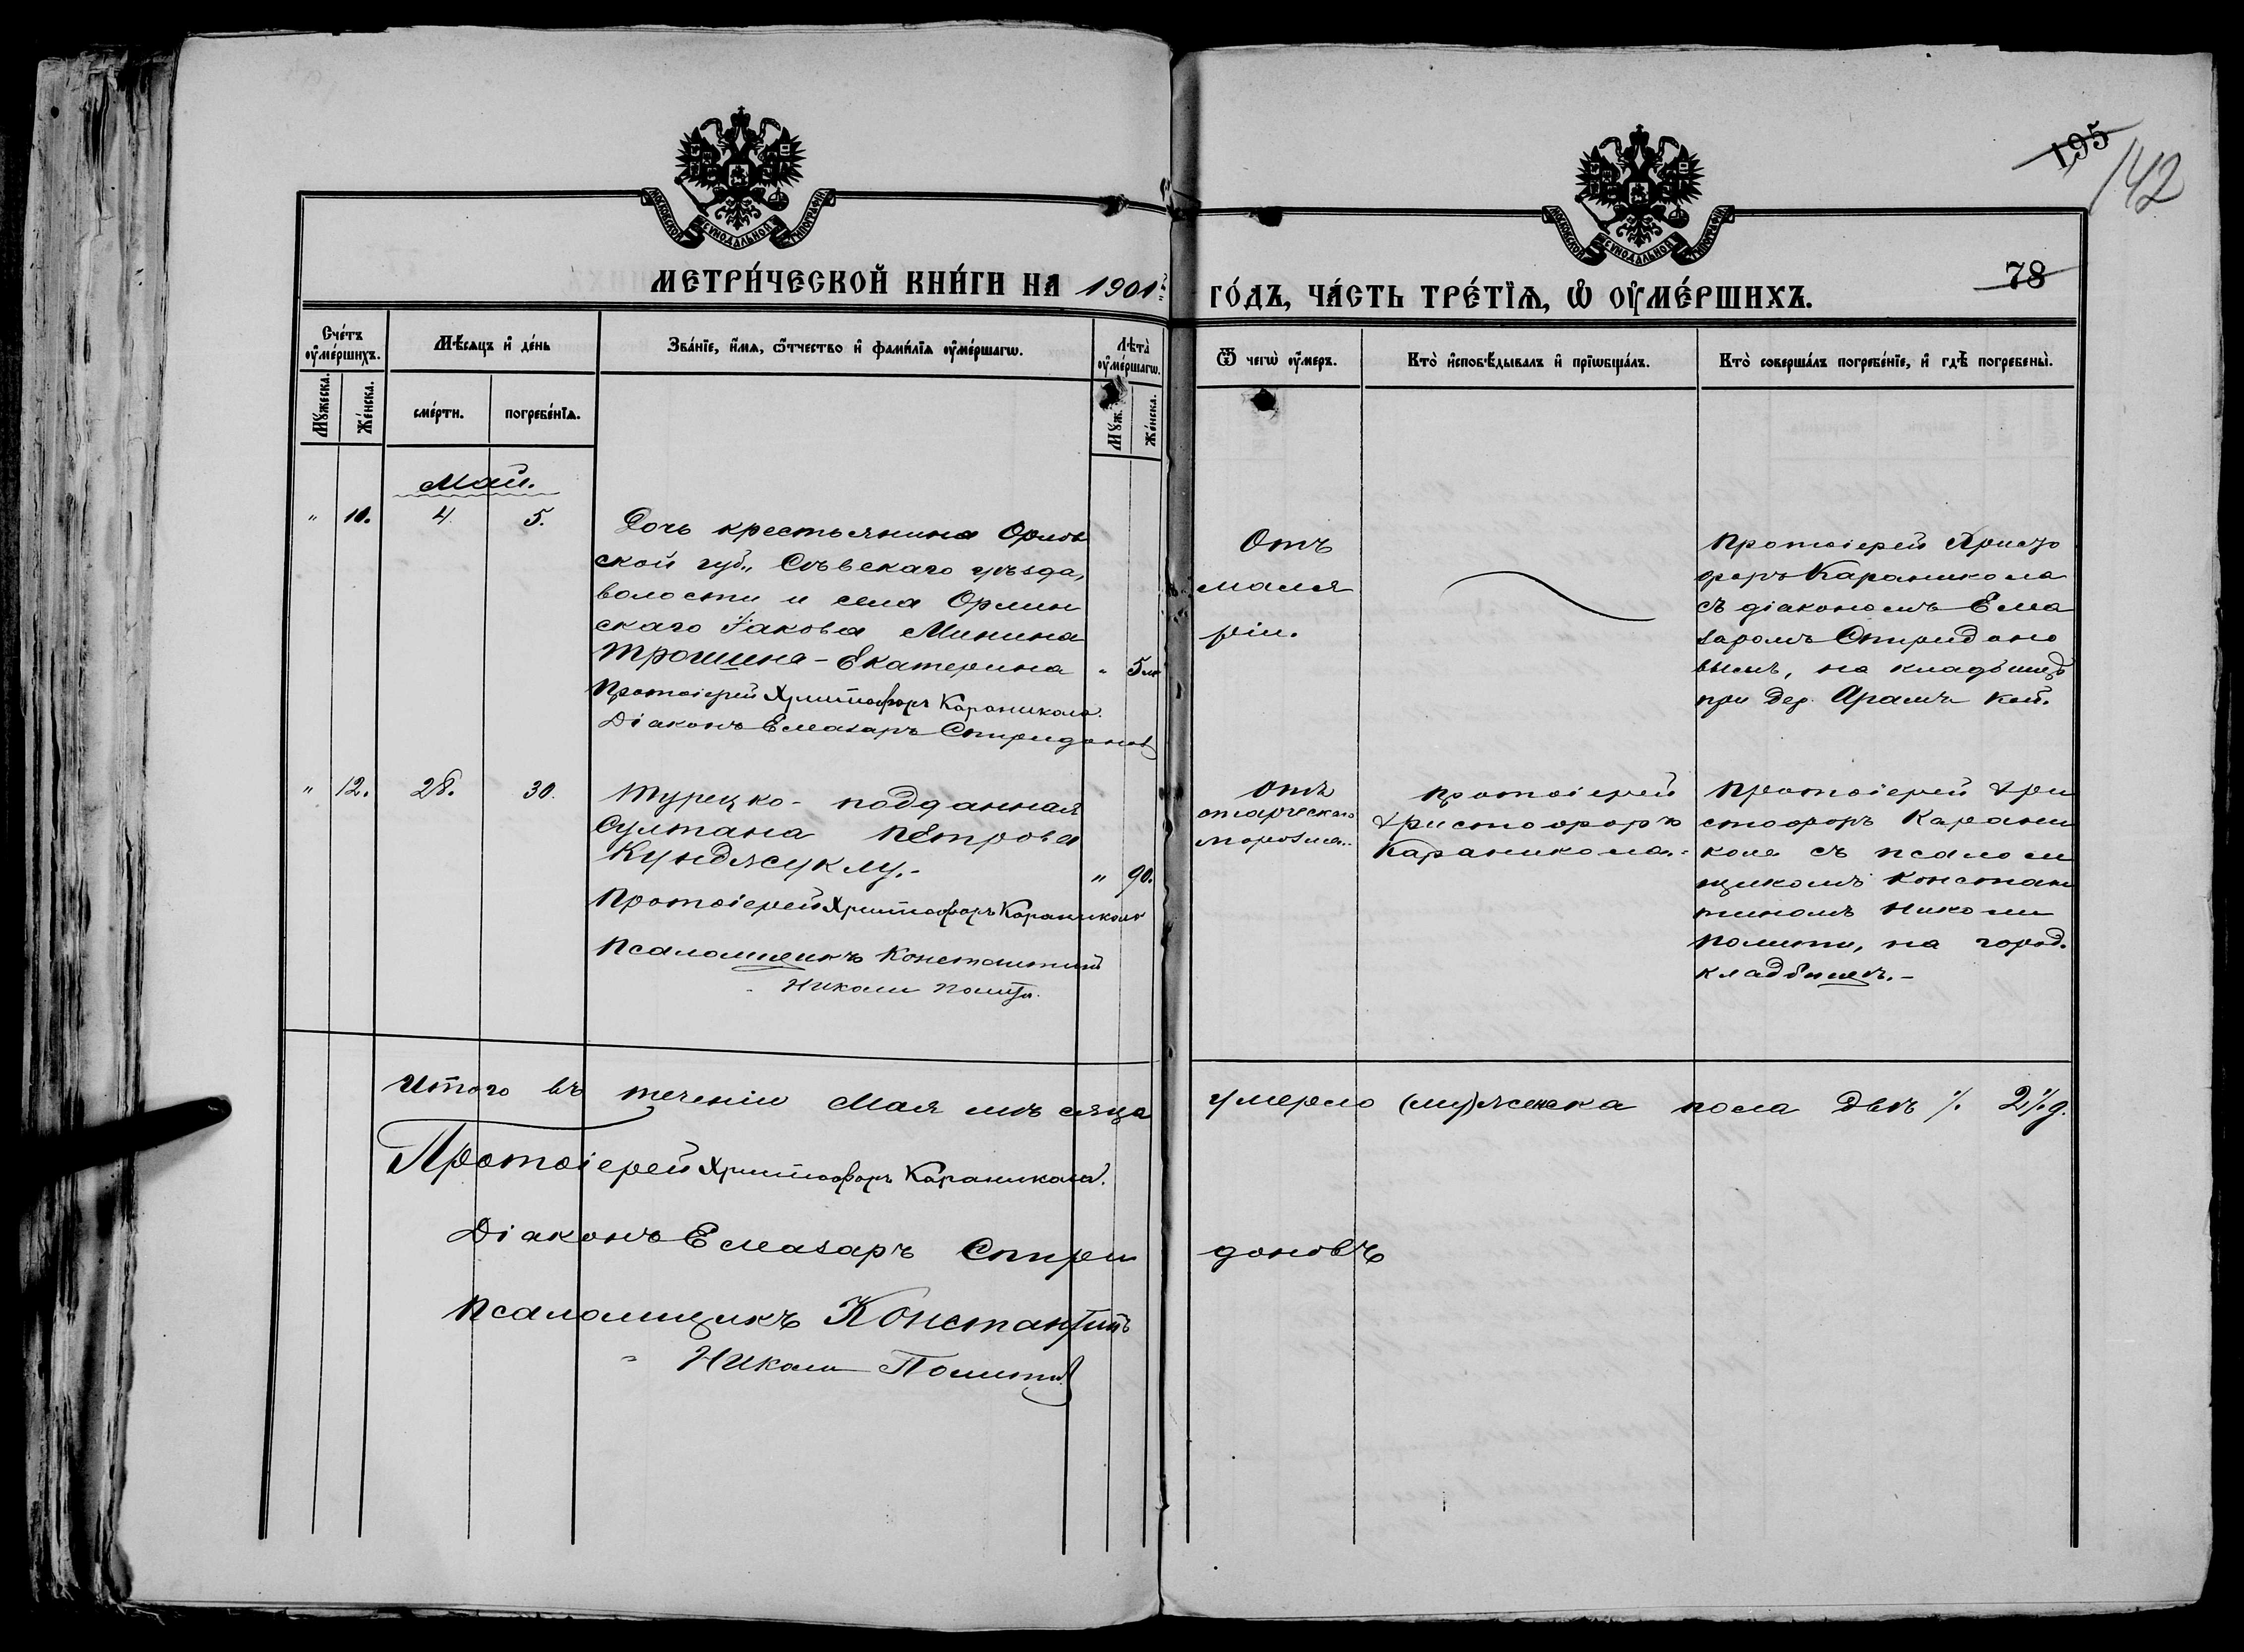 195
142
МОСКОВСКОЙ СѴНОДАЛЬНОЙ ТИПОГРАФІИ
МОСКОВСКОЙ СѴНОДАЛЬНОЙ ТИПОГРАФІИ
78
МЕТРИ́ЧЕСКОЙ КНИ́ГИ НА 1901 г. ГО́ДЪ, ЧА́СТЬ ТРЕ́ТЇѦ, Ѡ ОУМЕ́РШИХЪ.
Сче́тъ оуме́ршихъ.
Мꙋ́жеска.
Же́нска.
Мѣ́сѧцъ и де́нь
сме́рти.
погребе́нїѧ.
Зва́нїе, и́мѧ, ѻ҆́тчество и фами́лїѧ оуме́ршагѡ.
Лѣта̀ оуме́ршагѡ.
Мꙋж.
Же́нска.
Ѿ чегѡ̀ оу́меръ.
Кто̀ исповѣ́дывалъ и прїѡбща́лъ.
Кто̀ соверша́лъ погребе́нїе, и гдѣ̀ погребены̀.
Май.
" 11. 4. 5.
Дочь крестьянина Орлов
ской губ., Сѣвскаго уѣзда,
волости и села Орлин
скаго Іакова Минина
Трошина - Екатерина " 5 м
Протоіерей Христофоръ Караникола.
Діаконъ Елеазаръ Спиридоновъ
Отъ
маля
ріи.
Протоіерей Христо
форъ Караникола
съ діакономъ Елеа
заромъ Спиридоно
вымъ, на кладбищѣ
при дер. Арамъ Кой.
" 12. 28. 30.
Турецко-подданная
Султана Петрова
Кунджуклу.- " 90.
Протоіерей Христофоръ Караникола
Псаломщикъ Константинъ
Николи Полити.
отъ
старческаго
маразма.
Протоіерей
Христофоръ
Караникола.
Протоіерей Хри
стофоръ Карани
кола съ псалом
щикомъ Констан
тиномъ Николи
Полити, на город.
кладбищѣ.-
Итого въ теченіи Мая мѣсяца умерло (му) женска пола двѣ /. 2 /. д.
Протоіерей Христофоръ Караникола.
Діаконъ Елеазаръ Спиридоновъ
Псаломщикъ Константинъ
Николи Полити